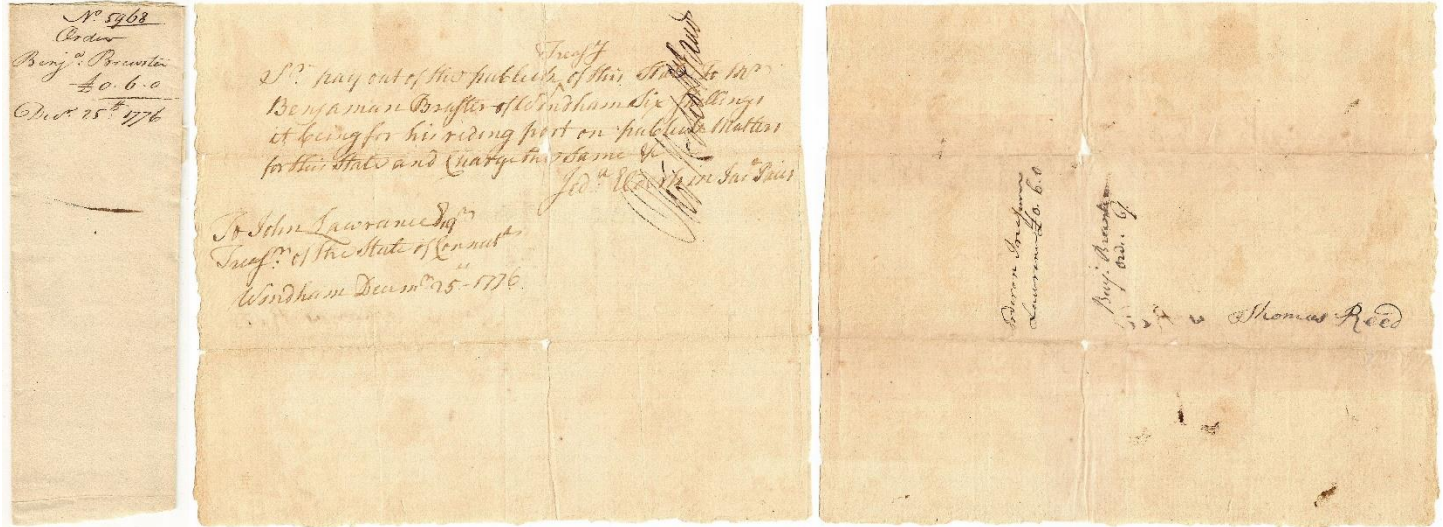 No 5968
Order
Benja. Brewster
£0.6.0
Decr. 25th 1776
Treasy
Sr. pay out of the publick of this State to Mr
Benjaman Bruster of Windham Six shillings
it being for his rideing post on publick Matters
for this State and Charge the Same &c
Jedh Elderkin Jus Pacis
To John Lawrance Esqr
Treasr. of the State of Connectt
Windham Decemr 25th 1776.
Order on Treasurer
Lawrance £0.6.0
Benj. Brewster
ordr. 6/
Thomas Reed